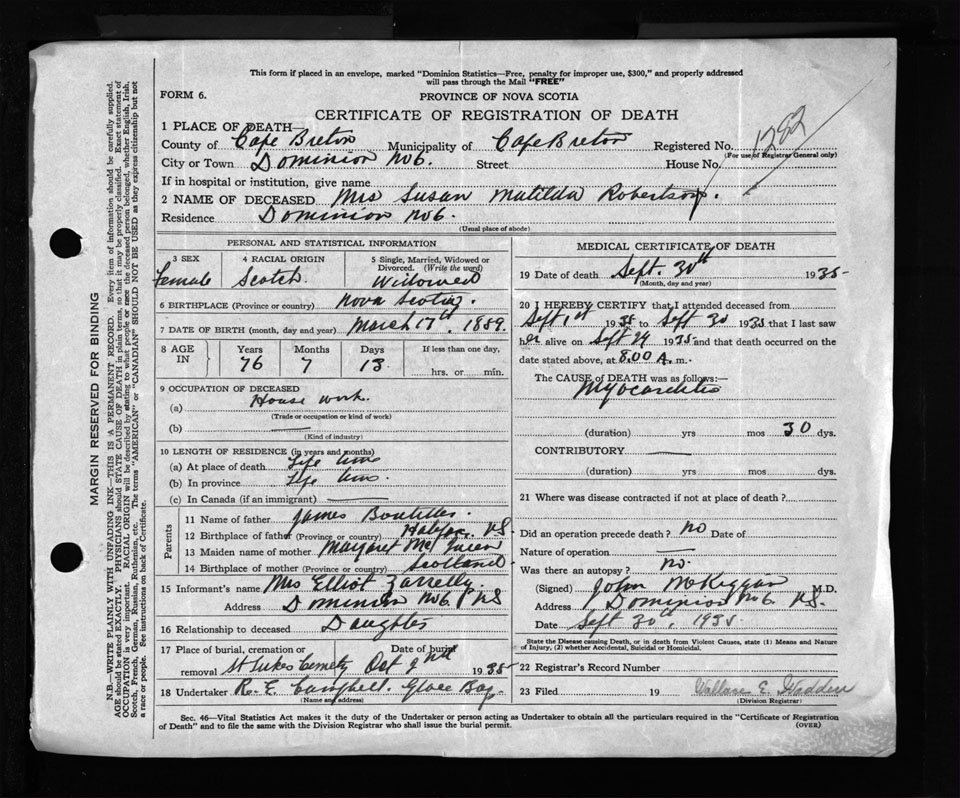 This form if placed in an envelope, marked "Dominion Statistics—Free, penalty for improper use, $300," and properly addressed
will pass through the Mail "FREE"
FORM 6. PROVINCE OF NOVA SCOTIA
CERTIFICATE OF REGISTRATION OF DEATH
1282
1 PLACE OF DEATH—
County of Cape Breton Municipality of Cape Breton Registered No.
(For use of Registrar General only)
City or Town Dominion No 6. Street House No.
If in hospital or institution, give name
2 NAME OF DECEASED Mrs Susan Matilda Robertson.
Residence Dominion No 6.
(Usual place of abode)
PERSONAL AND STATISTICAL INFORMATION
3 SEX 4 RACIAL ORIGIN 5 Single, Married, Widowed or
Divorced. (Write the word)
Female Scotch Widowed
6 BIRTHPLACE (Province or country) Nova Scotia.
7 DATE OF BIRTH (month, day and year) March 17th, 1859.
8 AGE IN Years Months Days If less than one day,
76 7 13 hrs. or min.
9 OCCUPATION OF DECEASED
(a) House work.
(Trade or occupation or kind of work)
(b)
(Kind of industry)
10 LENGTH OF RESIDENCE (in years and months)
(a) At place of death Life time
(b) In province Life time.
(c) In Canada (if an immigrant)
Parents
11 Name of father James Boutilier
12 Birthplace of father (Province or country) Halifax, NS.
13 Maiden name of mother Margaret
14 Birthplace of mother (Province or country) Scotland
15 Informant's name Mrs Elliot
Address Dominion No 6 NS
16 Relationship to deceased Daughter
17 Place of burial, cremation or Date of burial
removal St Lukes Cemetery Oct 2nd 1935
18 Undertaker R. E. Campbell. Glace Bay.
(Name and address)
MEDICAL CERTIFICATE OF DEATH
19 Date of death Sept. 30th 1935
(Month, day and year)
20 I HEREBY CERTIFY that I attended deceased from
Sept 1st 1935 to Sept 30 1935 that I last saw
her alive on Sept 29 1935 and that death occurred on the
date stated above, at 8.00 A. m.
The CAUSE OF DEATH was as follows:—
Myocarditis
(duration) yrs mos 30 dys.
CONTRIBUTORY
(duration) yrs mos dys.
21 Where was disease contracted if not at place of death?
Did an operation precede death? no Date of
Nature of operation
Was there an autopsy? no.
(Signed) John McKiggan M.D.
Address Dominion No 6. NS.
Date Sept 30th, 1935.
State the Disease causing Death, or in death from Violent Causes, state (1) Means and Nature
of Injury, (2) whether Accidental, Suicidal or Homicidal.
22 Registrar's Record Number
23 Filed 19 Wallace E. Hadden
(Division Registrar)
Sec. 46—Vital Statistics Act makes it the duty of the Undertaker or person acting as Undertaker to obtain all the particulars required in the "Certificate of Registration
of Death" and to file the same with the Division Registrar who shall issue the burial permit. (OVER)
MARGIN RESERVED FOR BINDING
N.B.—WRITE PLAINLY WITH UNFADING INK—THIS IS A PERMANENT RECORD. Every item of information should be carefully supplied.
AGE should be stated EXACTLY. PHYSICIANS should STATE CAUSE OF DEATH in plain terms, so that it may be properly classified. Exact statement of
OCCUPATION is very important. RACIAL ORIGIN will be described by stating to what people or race the deceased person belonged, whether English, Irish,
Scotch, French, German, Russian, Ruthenian, etc. The terms "AMERICAN" or "CANADIAN" SHOULD NOT BE USED as they express citizenship but not
a race or people. See instructions on back of Certificate.